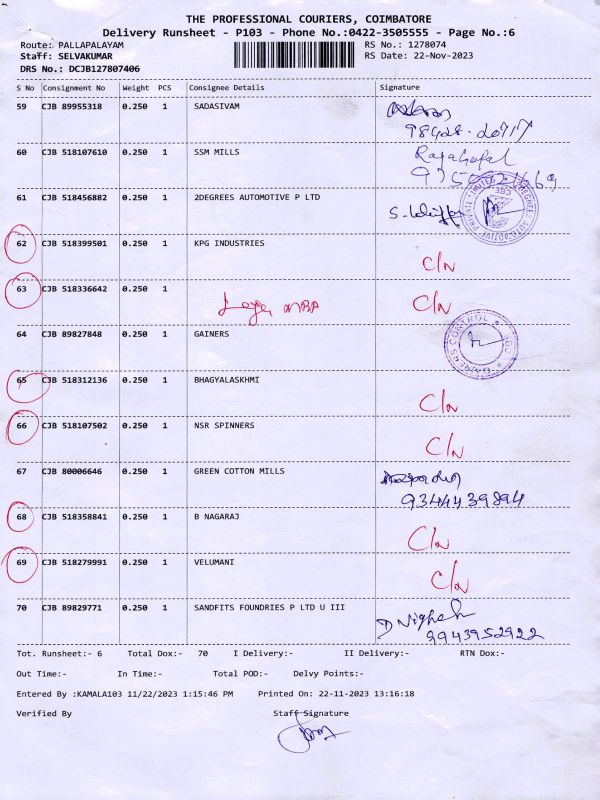 THE PROFESSIONAL COURIERS, COIMBATORE
Delivery Runsheet - P103 - Phone No.:0422-3505555 - Page No.:6
Route: PALLAPALAYAM
RS No.: 1278074
Staff: SELVAKUMAR
RS Date: 22-Nov-2023
DRS No.: DCJB127807406
S No Consignment No Weight PCS Consignee Details Signature
59 CJB 89955318 0.250 1 SADASIVAM
60 CJB 518107610 0.250 1 SSM MILLS Rajagopal
61 CJB 518456882 0.250 1 2DEGREES AUTOMOTIVE P LTD
62 CJB 518399501 0.250 1 KPG INDUSTRIES
C/N
63 CJB 518336642 0.250 1
C/N
64 CJB 89827848 0.250 1 GAINERS
65 CJB 518312136 0.250 1 BHAGYALASKHMI
C/N
66 CJB 518107502 0.250 1 NSR SPINNERS
C/N
67 CJB 80006646 0.250 1 GREEN COTTON MILLS
9344439894
68 CJB 518358841 0.250 1 B NAGARAJ
C/N
69 CJB 518279991 0.250 1 VELUMANI
C/N
70 CJB 89829771 0.250 1 SANDFITS FOUNDRIES P LTD U III
9943952922
Tot. Runsheet:- 6 Total Dox:- 70 I Delivery:- II Delivery:- RTN Dox:-
Out Time:- In Time:- Total POD:- Delvy Points:-
Entered By :KAMALA103 11/22/2023 1:15:46 PM Printed On: 22-11-2023 13:16:18
Verified By Staff Signature